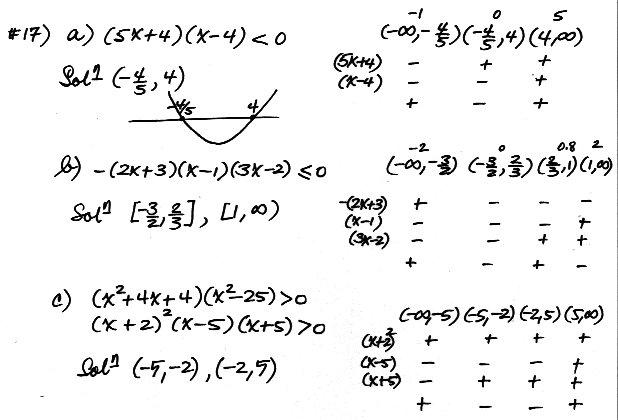 #17) a) (5x+4)(x-4) < 0
Sol'n (-4/5, 4)
-4/5 4
-1 0 5
(-∞, -4/5) (-4/5, 4) (4, ∞)
(5x+4) - + +
(x-4) - - +
+ - +
b) -(2x+3)(x-1)(3x-2) ≤ 0
Sol'n [-3/2, 2/3], [1, ∞)
-2 0 0.8 2
(-∞, -3/2) (-3/2, 2/3) (2/3, 1) (1, ∞)
-(2x+3) + - - -
(x-1) - - - +
(3x-2) - - + +
+ - + -
c) (x²+4x+4)(x²-25) > 0
(x+2)²(x-5)(x+5) > 0
Sol'n (-5, -2), (-2, 5)
(-∞, -5) (-5, -2) (-2, 5) (5, ∞)
(x+2)² + + + +
(x-5) - - - +
(x+5) - + + +
+ - - +